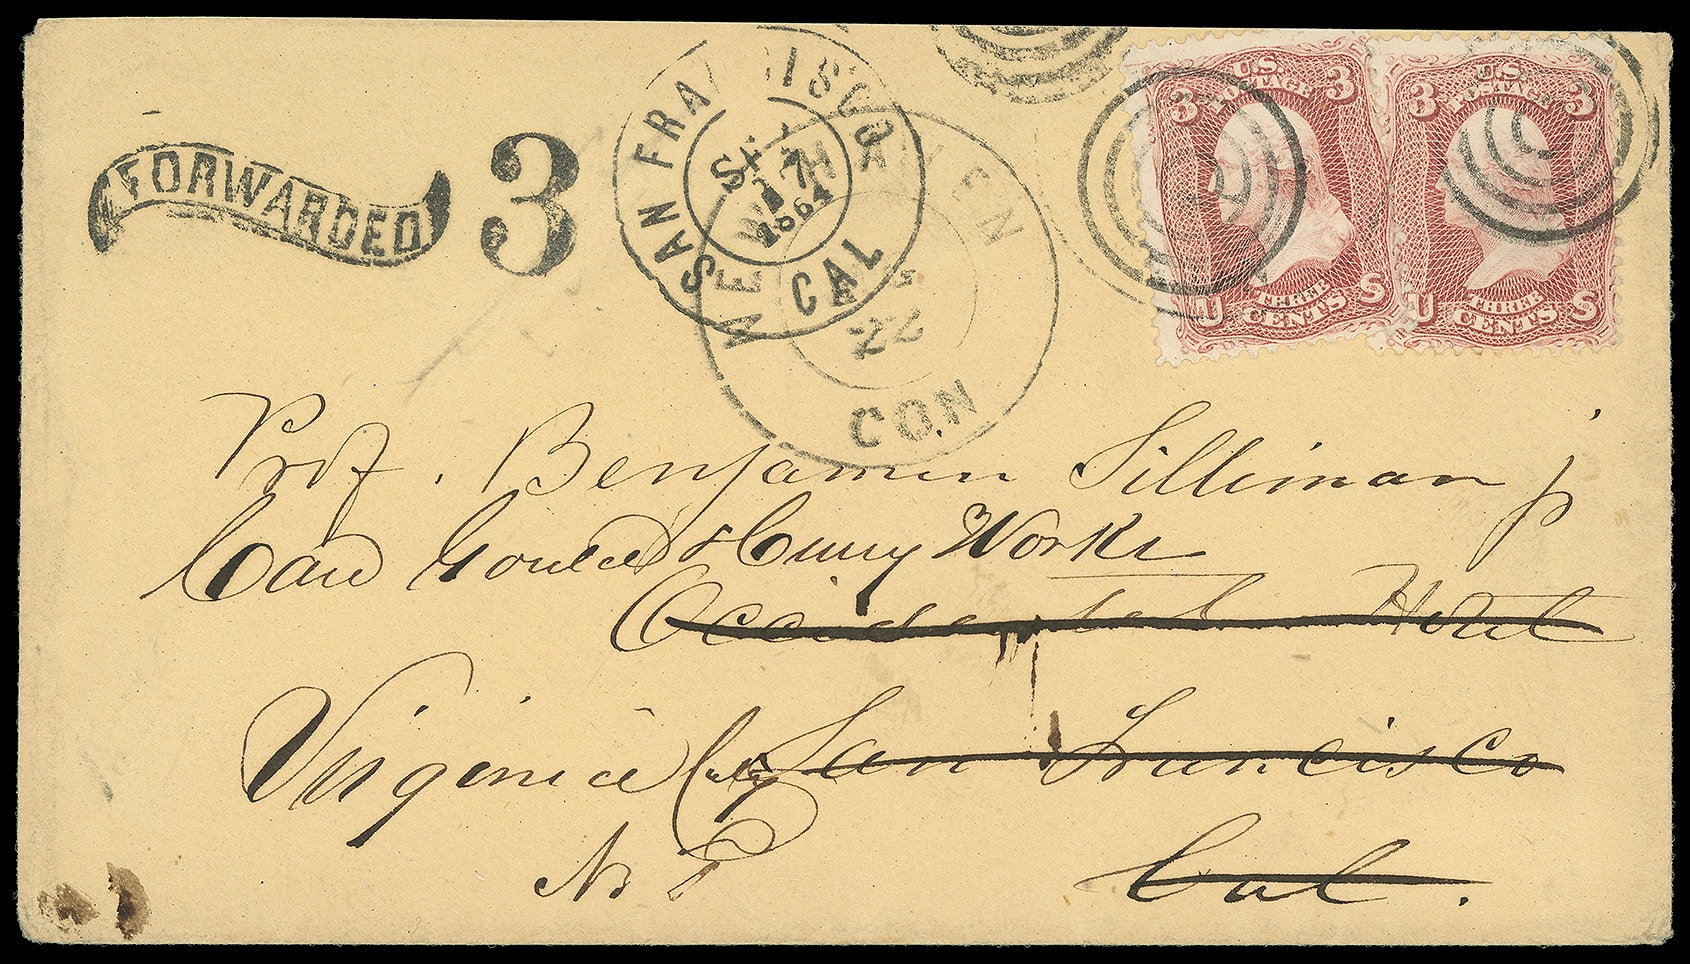 FORWARDED
3
SAN FRANCISCO
SEP
17
1864
CAL
NEW HAVEN
22
CON
3 U.S. POSTAGE 3
U THREE CENTS S
3 U.S. POSTAGE 3
U THREE CENTS S
Prof. Benjamin Silliman jr
Care Gould & Curry Works
Occidental Hotel
Virginia City San Francisco
N T Cal.